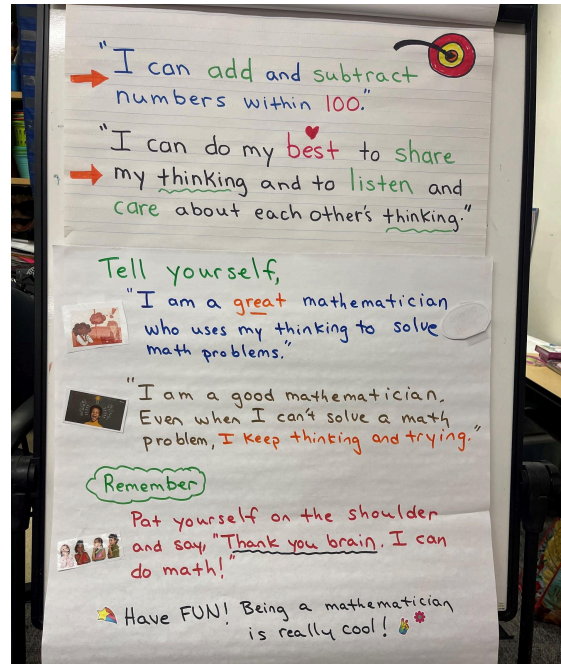 "I can add and subtract
numbers within 100."
"I can do my best to share
my thinking and to listen and
care about each other's thinking."
Tell yourself,
"I am a great mathematician
who uses my thinking to solve
math problems."
"I am a good mathematician.
Even when I can't solve a math
problem, I keep thinking and trying."
Remember
Pat yourself on the shoulder
and say, "Thank you brain. I can
do math!"
Have FUN! Being a mathematician
is really cool!